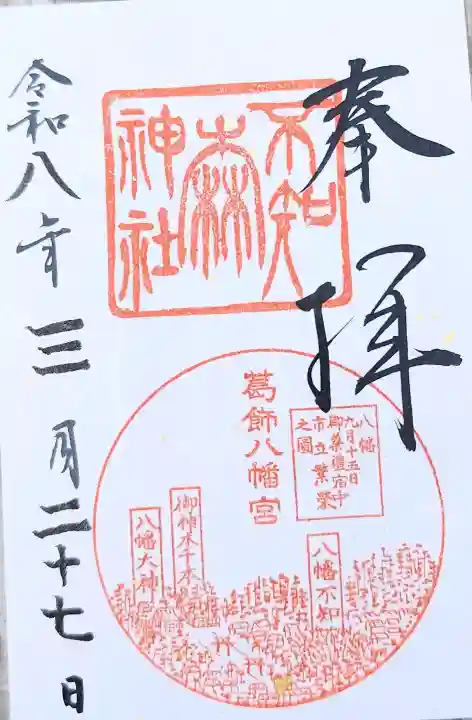 奉拝
不知
森
神社
葛飾八幡宮
八幡
九月十五日
御祭禮宿中
市立繁榮
之圖
八幡不知
御神木千本
八幡大神
令和八年三月二十七日